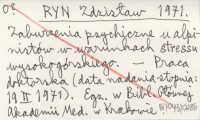 RYN Zdzisław 1971.
Zaburzenia psychiczne u alpi-
nistów w warunkach stressu
wysokogórskiego. — Praca
doktorska (data nadania stopnia:
19 II 1971). Egz. w Bibl. Głównej
Akademii Med. w Krakowie